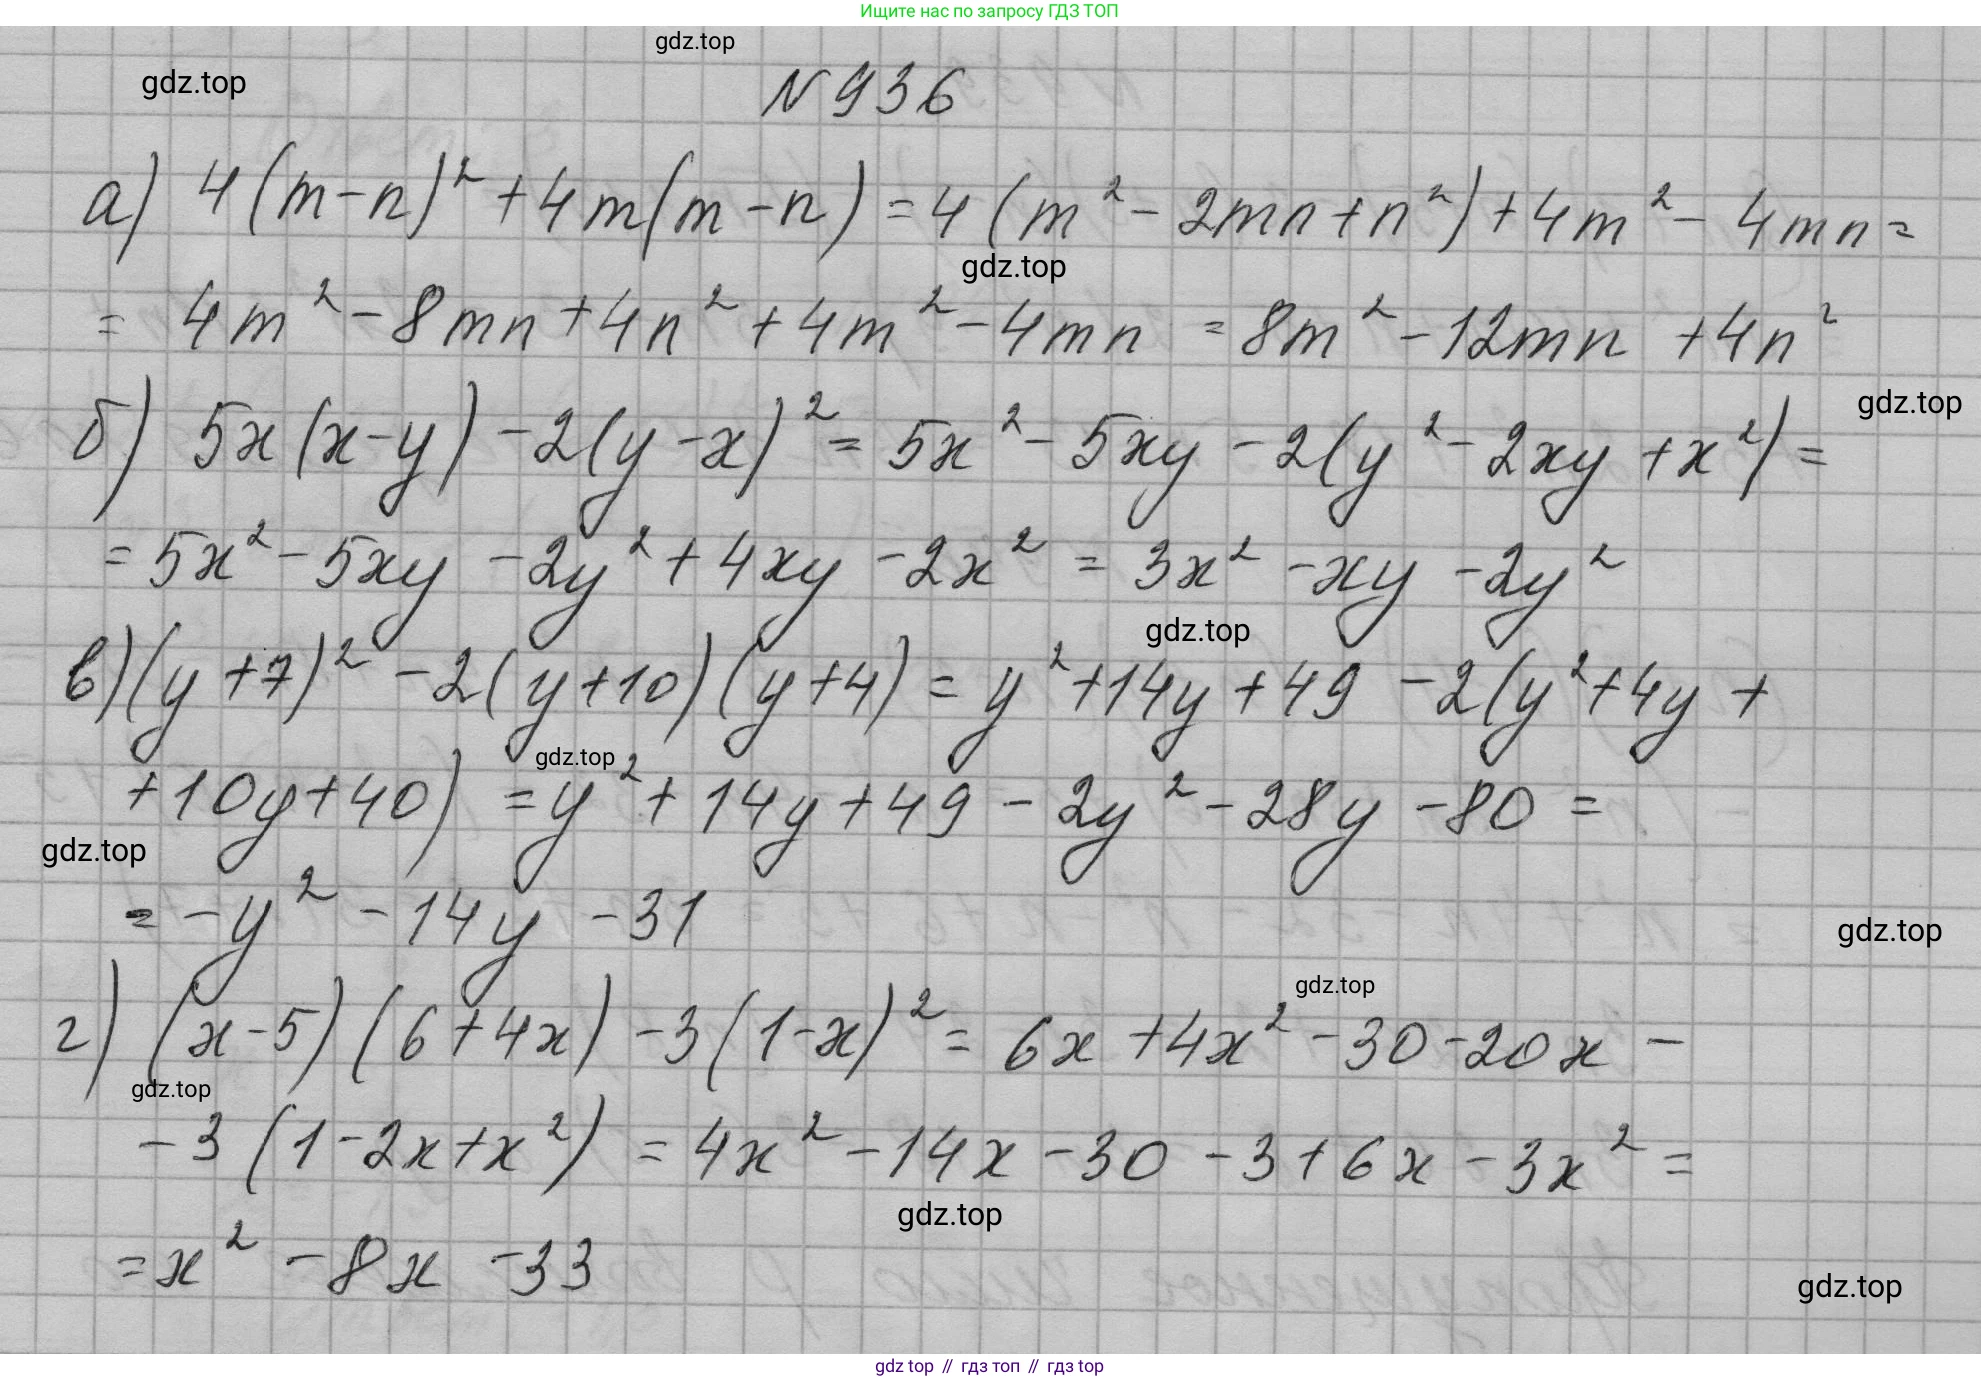 Ищите нас по запросу ГДЗ ТОП
gdz.top
gdz.top
N 936
а) 4(m-n)² +4m(m-n) = 4(m² - 2mn + n²) + 4m² - 4mn =
gdz.top
= 4m² - 8mn + 4n² + 4m² - 4mn = 8m² - 12mn + 4n²
gdz.top
б) 5x(x-y) - 2(y-x)² = 5x² - 5xy - 2(y² - 2xy + x²) =
= 5x² - 5xy - 2y² + 4xy - 2x² = 3x² - xy - 2y²
gdz.top
в) (y+7)² - 2(y+10)(y+4) = y² + 14y + 49 - 2(y² + 4y +
gdz.top
+ 10y + 40) = y² + 14y + 49 - 2y² - 28y - 80 =
gdz.top
= -y² - 14y - 31
gdz.top
gdz.top
г) (x-5)(6+4x) - 3(1-x)² = 6x + 4x² - 30 - 20x -
gdz.top
- 3(1 - 2x + x²) = 4x² - 14x - 30 - 3 + 6x - 3x² =
gdz.top
= x² - 8x - 33
gdz.top
gdz top // гдз топ // гдз top